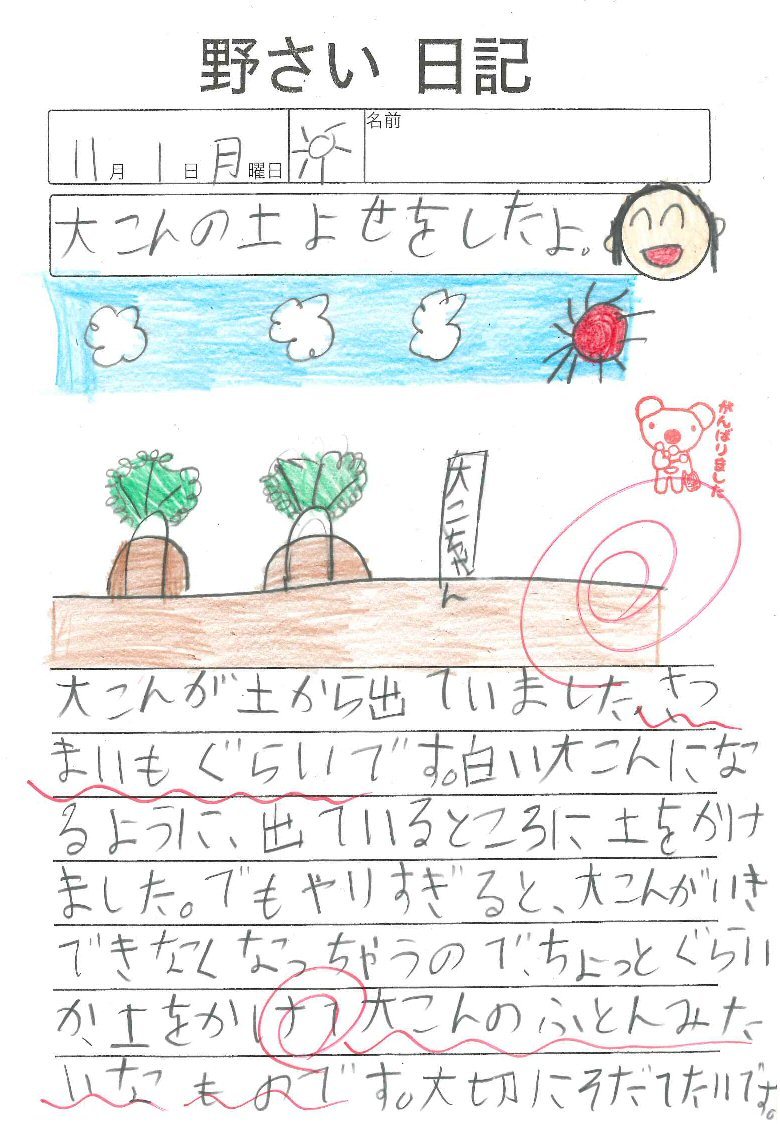 野さい 日記
11月 1日 月曜日 名前
大こんの土よせをしたよ。
がんばりました
大こちゃん
大こんが土から出ていました。さつ
まいもぐらいです。白い大こんにな
るように、出ているところに土をかけ
ました。でもやりすぎると、大こんがいき
できなくなっちゃうので、ちょっとぐらい
か、土をかけて大こんのふとんみた
いなものです。大切にそだてたいです。